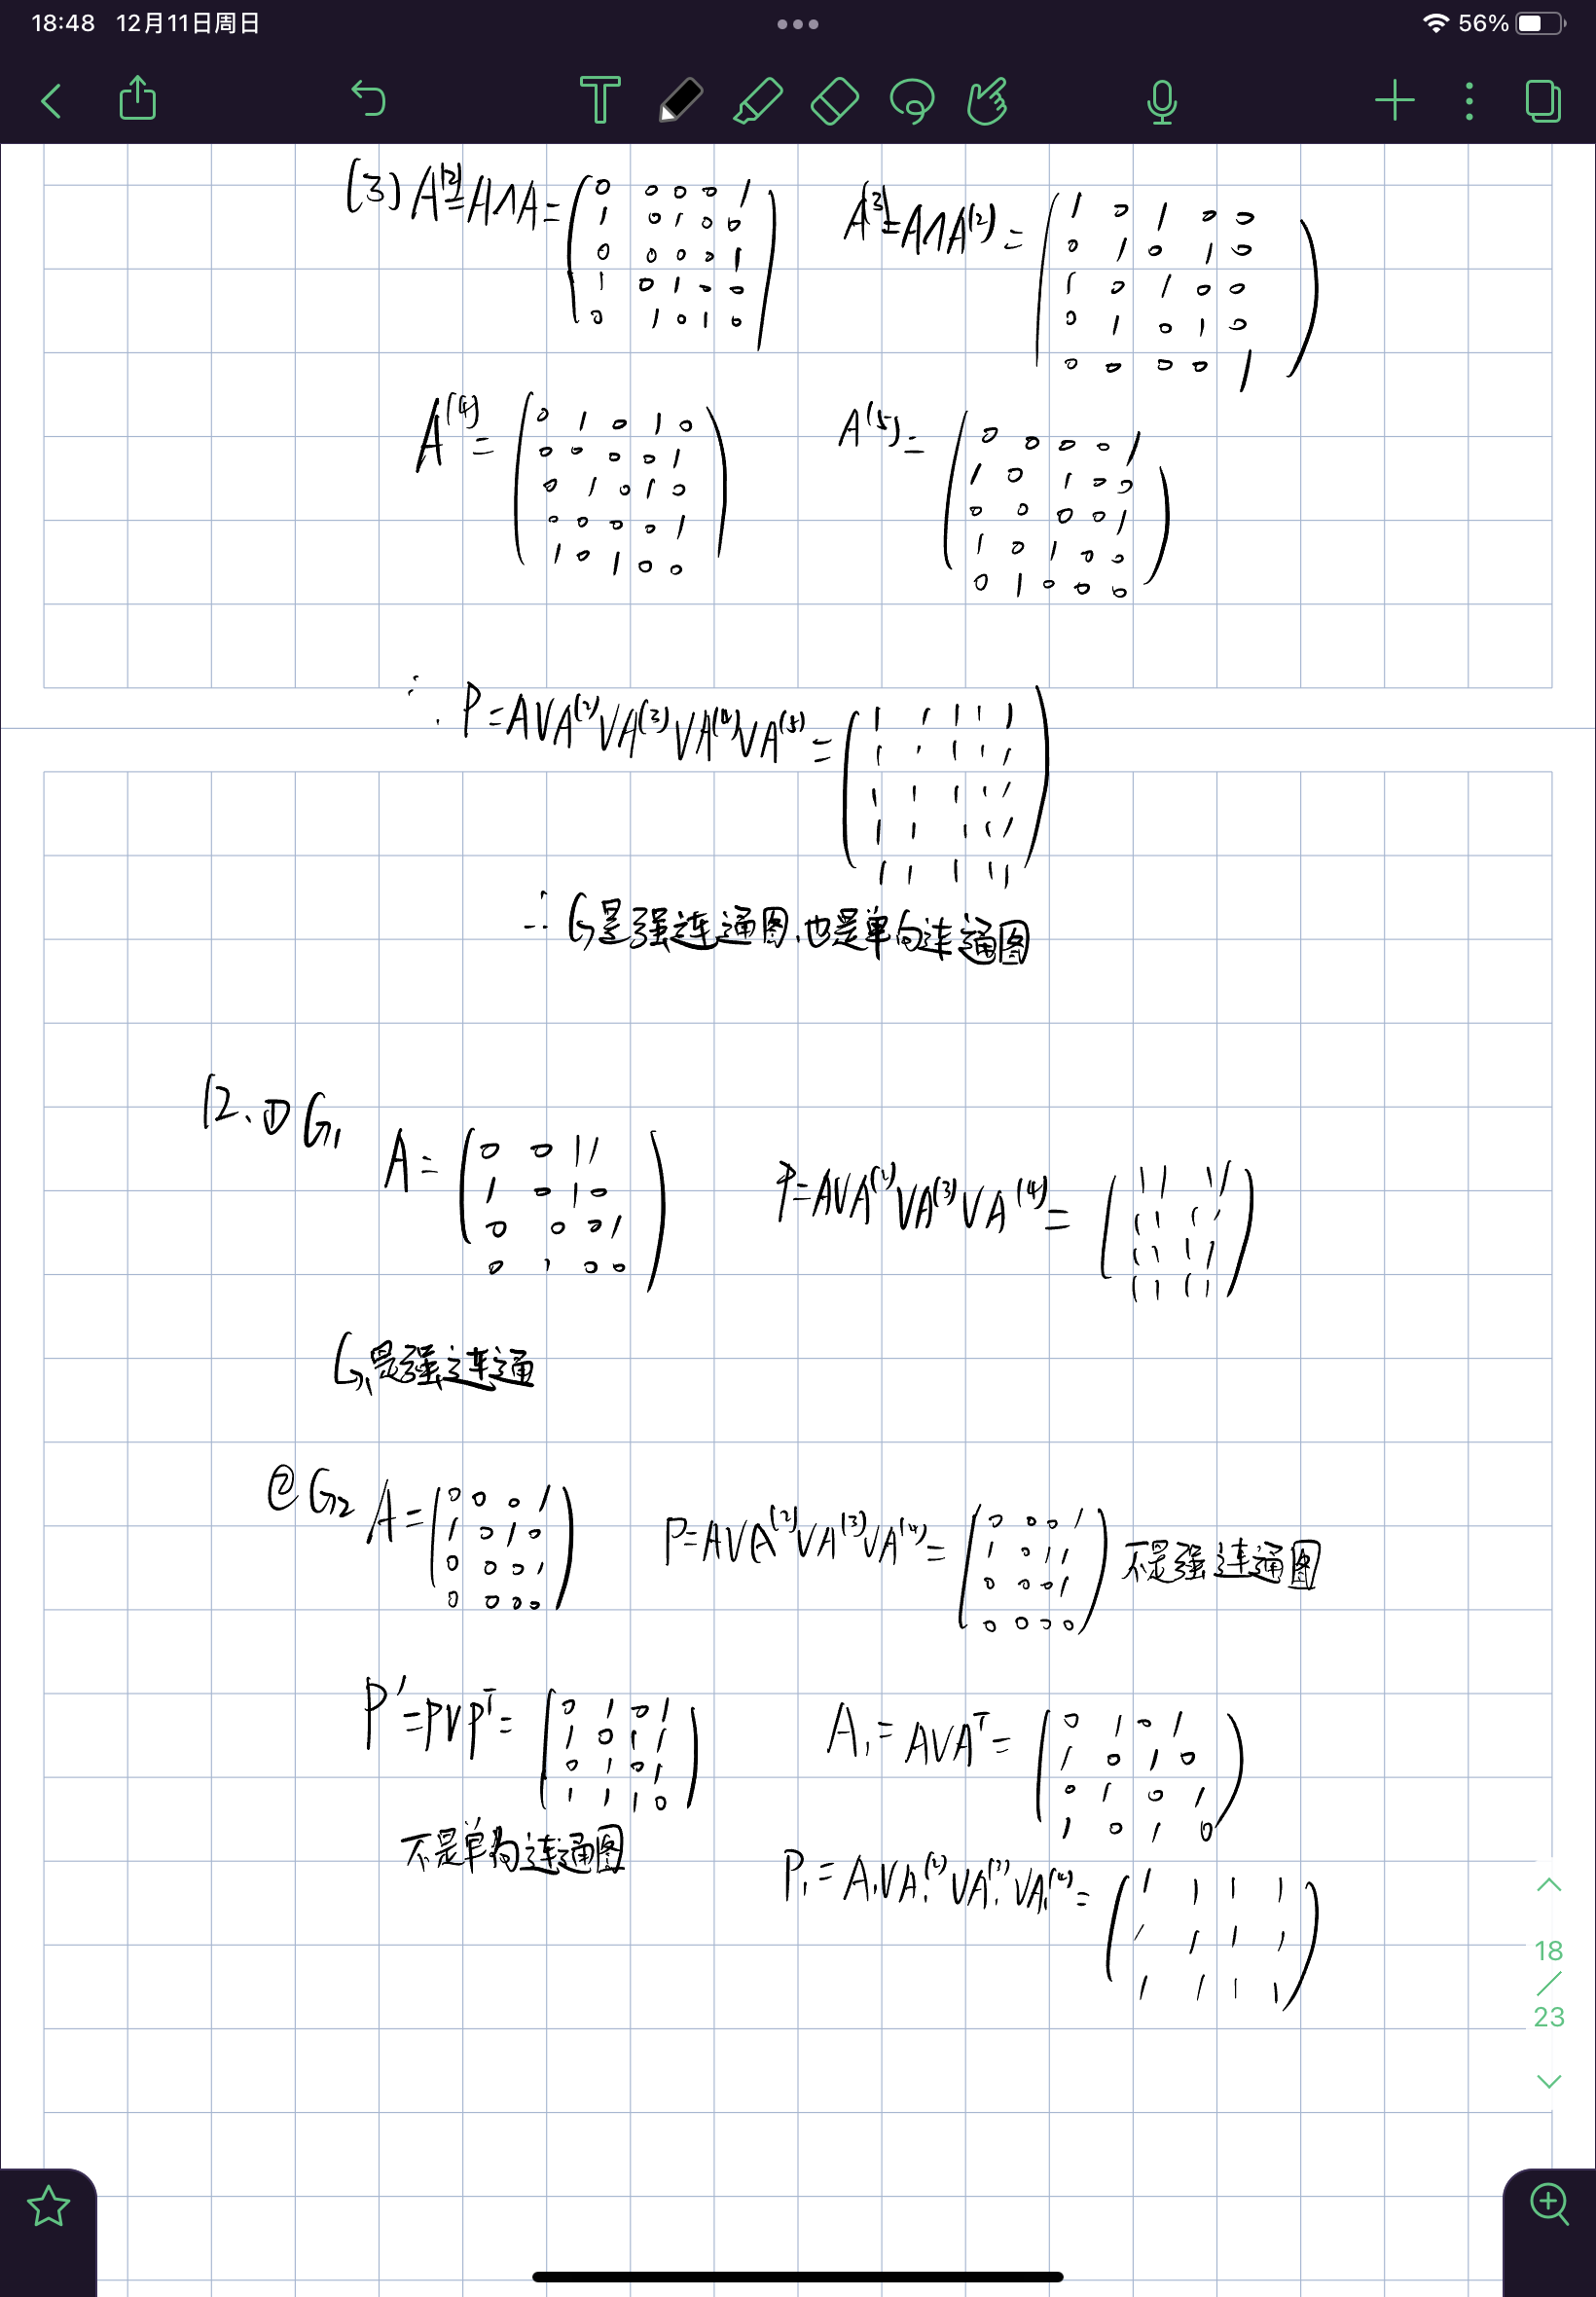 18:48 12月11日周日 56%
T
(3) A⁽²⁾=A∧A= A⁽³⁾=A∧A⁽²⁾=
0 0 0 0 1
1 0 1 0 0
0 0 0 0 1
1 0 1 0 0
0 1 0 1 0
1 0 1 0 0
0 1 0 1 0
1 0 1 0 0
0 1 0 1 0
0 0 0 0 1
A⁽⁴⁾= A⁽⁵⁾=
0 1 0 1 0
0 0 0 0 1
0 1 0 1 0
0 0 0 0 1
1 0 1 0 0
0 0 0 0 1
1 0 1 0 0
0 0 0 0 1
1 0 1 0 0
0 1 0 0 0
∴ P=A∨A⁽²⁾∨A⁽³⁾∨A⁽⁴⁾∨A⁽⁵⁾=
1 1 1 1 1
1 1 1 1 1
1 1 1 1 1
1 1 1 1 1
1 1 1 1 1
∴ G是强连通图,也是单向连通图
12. ① G₁
A=
0 0 1 1
1 0 1 0
0 0 0 1
0 1 0 0
P=A∨A⁽²⁾∨A⁽³⁾∨A⁽⁴⁾=
1 1 1 1
1 1 1 1
1 1 1 1
1 1 1 1
G₁是强连通
② G₂ A=
0 0 0 1
1 0 1 0
0 0 0 1
0 0 0 0
P=A∨A⁽²⁾∨A⁽³⁾∨A⁽⁴⁾=
0 0 0 1
1 0 1 1
0 0 0 1
0 0 0 0
不是强连通图
P′=P∨Pᵀ=
0 1 0 1
1 0 1 1
0 1 0 1
1 1 1 0
A₁=A∨Aᵀ=
0 1 0 1
1 0 1 0
0 1 0 1
1 0 1 0
不是单向连通图
P₁=A₁∨A₁⁽²⁾∨A₁⁽³⁾∨A₁⁽⁴⁾=
1 1 1 1
1 1 1 1
1 1 1 1
18
/
23